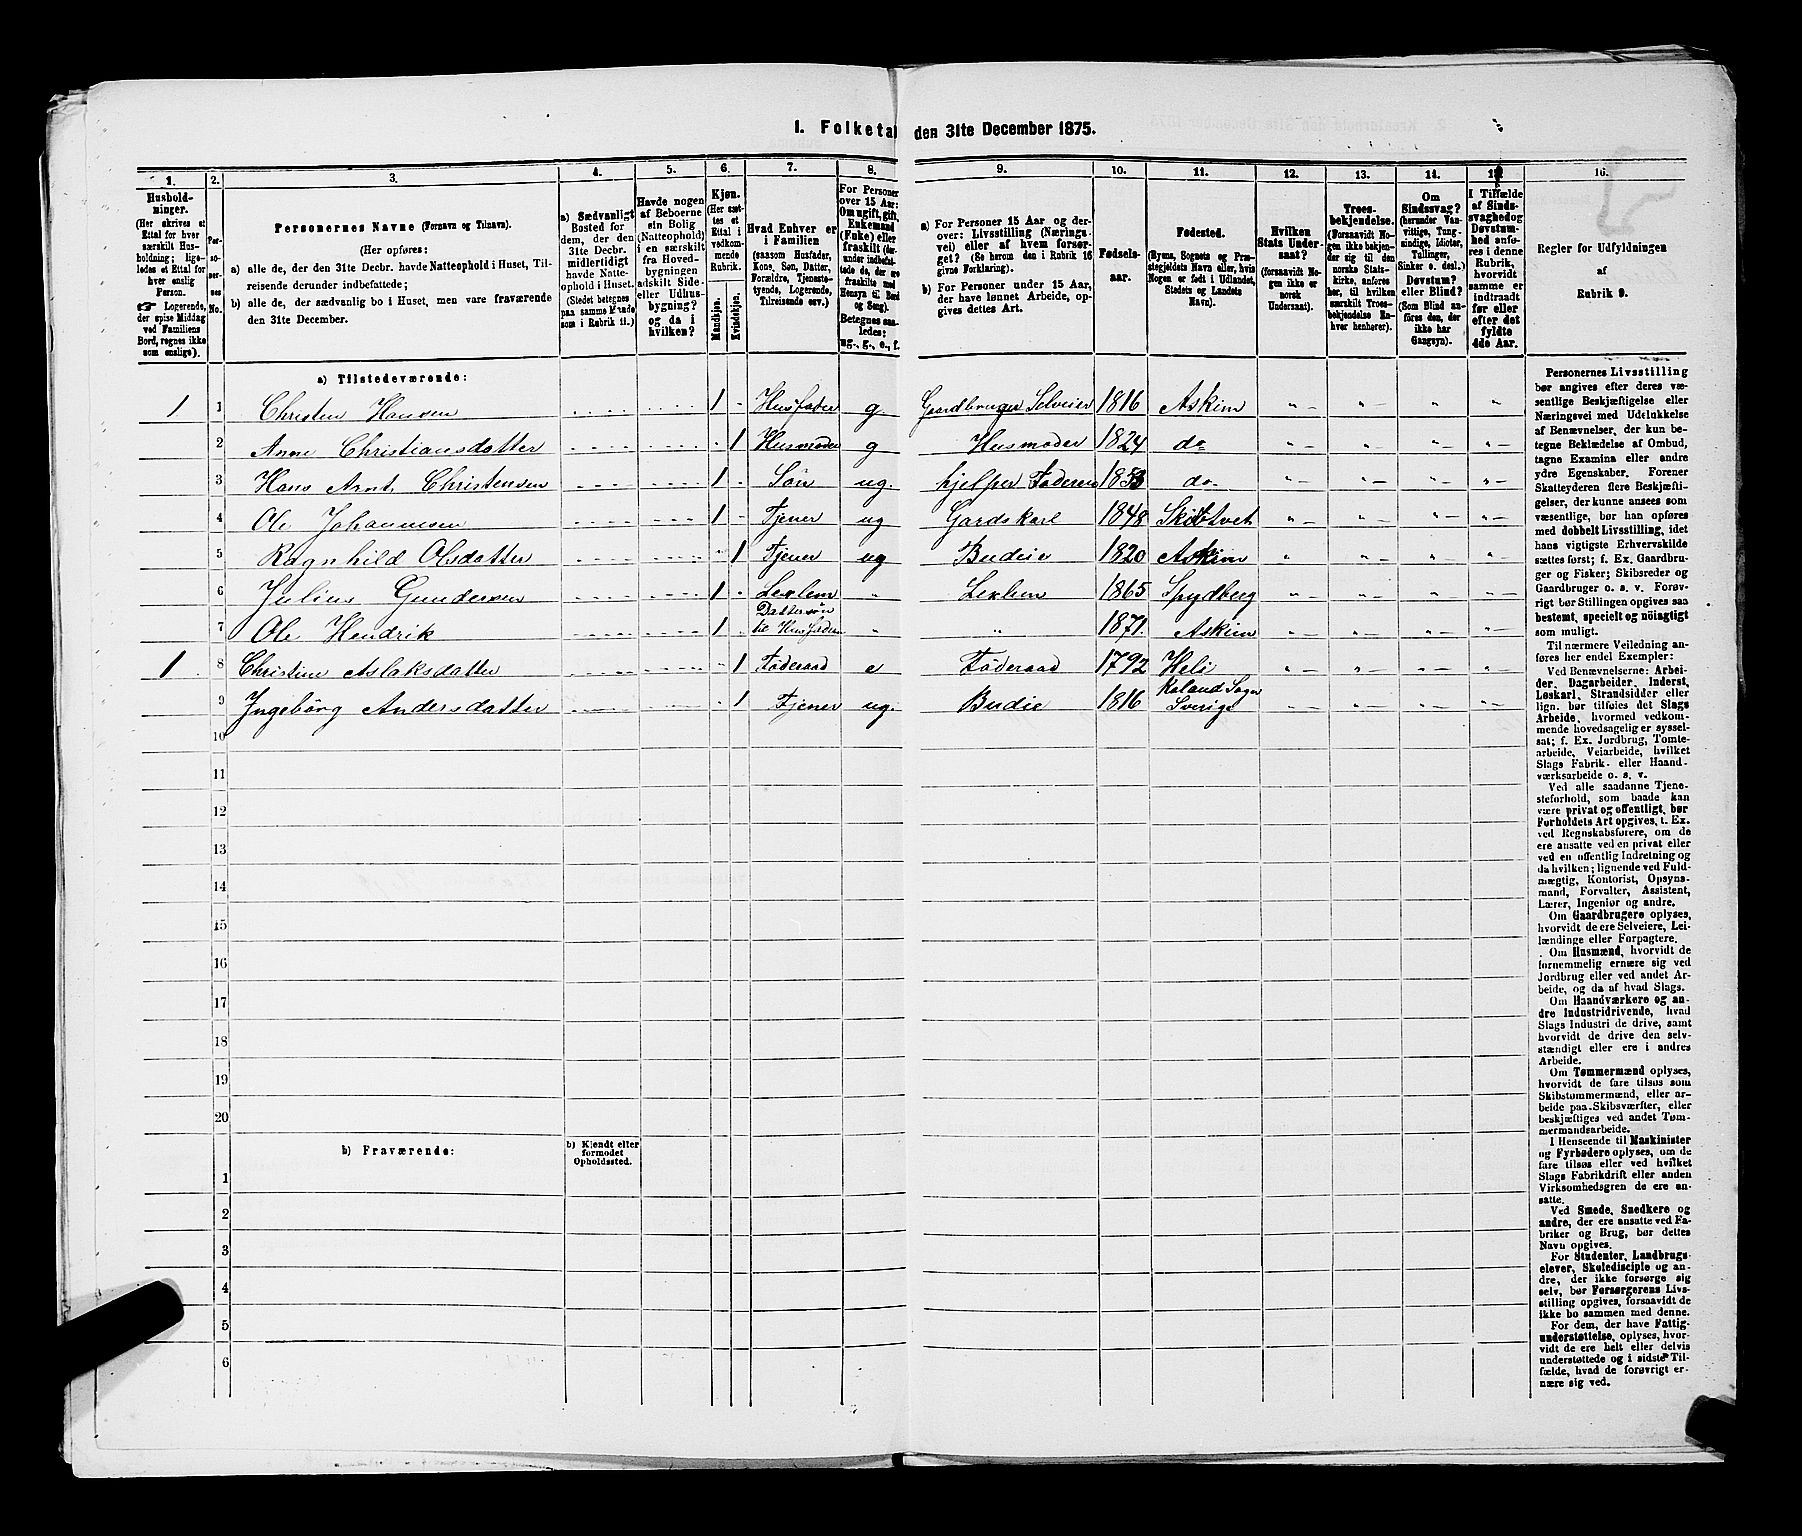 1. Folketal den 31te December 1875.
1.
Hushold-
ninger.
(Her skrives et
Ettal for hver
særskilt Hus-
holdning; lige-
ledes et Ettal for
hver enslig
Person.
☞ Logerende,
der spise Middag
ved Familiens
Bord, regnes ikke
som enslige).
2.
Per-
soner-
nes
No.
3.
Personernes Navne (Fornavn og Tilnavn).
(Her opføres:
a) alle de, der den 31te Decbr. havde Natteophold i Huset, Til-
reisende derunder indbefattede;
b) alle de, der sædvanlig bo i Huset, men vare fraværende
den 31te December.
4.
a) Sædvanligt
Bosted for
dem, der den
31te Decbr.
midlertidigt
havde Natte-
ophold i Huset.
(Stedet betegnes
paa samme Maade
som i Rubrik 11.)
5.
Havde nogen
af Beboerne
sin Bolig
(Natteophold)
i en særskilt
fra Hoved-
bygningen
adskilt Side-
eller Udhus-
bygning?
og da i
hvilken?
6.
Kjøn.
(Her sæt-
tes et
Ettal i
vedkom-
mende
Rubrik.
Mandkjøn.
Kvindekjøn.
7.
Hvad Enhver er
i Familien
(saasom Husfader,
Kone, Søn, Datter,
Forældre, Tjeneste-
tyende, Logerende,
Tilreisende osv.)
8.
For Personer
over 15 Aar:
Om ugift, gift,
Enkemand
(Enke) eller
fraskilt (der-
under indbefat-
tede de, der ere
fraskilte med
Hensyn til Bord
og Seng).
Betegnes saa-
ledes:
ug., g., e., f.
9.
a) For Personer 15 Aar og der-
over: Livsstilling (Nærings-
vei) eller af hvem forsør-
get? (Se herom den i Rubrik 16
givne Forklaring).
b) For Personer under 15 Aar,
der have lønnet Arbeide, op-
gives dettes Art.
10.
Fødsels-
aar.
11.
Fødested.
(Byens, Sognets og Præ-
stegjeldets Navn eller, hvis
Nogen er født i Udlandet,
Stedets og Landets
Navn).
12.
Hvilken
Stats Under-
saat?
(forsaavidt No-
gen ikke er
norsk
Undersaat).
13.
Troes-
bekjendelse.
(Forsaavidt No-
gen ikke bekjen-
der sig til den
norske Stats-
kirke, anføres
her, til hvilken
særskilt Troes-
bekjendelse En-
hver henhører).
14.
Om
Sindssvag?
(herunder Van-
vittige, Tung-
sindige, Idioter,
Tullinger,
Sinker o. desl.)
Døvstum?
eller Blind?
(Som Blind an-
føres den, der
ikke har
Gangsyn).
15.
I Tilfælde
af Sinds-
svaghed og
Døvstum-
hed anfø-
res i denne
Rubrik,
hvorvidt
samme er
indtraadt
før eller
efter det
fyldte
4de Aar.
16.
Regler for Udfyldningen
af
Rubrik 9.
a) Tilstedeværende:
1 1 Christen Hansen 1 Husfader g. Gaardbruger Selveier 1816 Askim
2 Anne Christiansdatter 1 Husmoder g Husmoder 1824 do
3 Hans Arnt Christensen 1 Søn ug. hjelper Faderen 1853 do
4 Ole Johannesen 1 Tjener ug Gardskarl 1848 Skibtvet
5 Ragnhild Olsdatter 1 Tjener ug Budeie 1820 Askim
6 Julius Gundersen 1 Leylem " Leylem 1865 Spydberg
7 Ole Hendrik 1 Dattersøn
til Husfaderen " " 1871. Askim
1 8 Christine Aslaksdatter 1 Føderaad e Føderaad 1792 Heli
9 Ingebörg Andersdatter 1 Tjener ug. Budeie 1816 Sogn
Sverige
10
11
12
13
14
15
16
17
18
19
20
b) Fraværende:
b) Kjendt eller
formodet
Opholdssted.
1
2
3
4
5
6
Personernes Livsstilling
bør angives efter deres væ-
sentlige Beskjæftigelse eller
Næringsvei med Udelukkelse
af Benævnelser, der kun be-
tegne Beklædelse af Ombud,
tagne Examina eller andre
ydre Egenskaber. Forener
Skatteyderen flere Beskjæfti-
gelser, der kunne ansees som
væsentlige, bør han opføres
med dobbelt Livsstilling, idet
hans vigtigste Erhvervskilde
sættes først; f. Ex. Gaardbru-
ger og Fisker; Skibsreder og
Gaardbruger o. s. v. Forøv-
rigt bør Stillingen opgives saa
bestemt, specielt og nöiagtigt
som muligt.
Til nærmere Veiledning an-
føres her endel Exempler:
Ved Benævnelserne: Arbei-
der, Dagarbeider, Inderst,
Løskarl, Strandsidder eller
lign. bør tilføies det Slags
Arbeide, hvormed vedkom-
mende hovedsagelig er syssel-
sat; f. Ex. Jordbrug, Tomte-
arbeide, Veiarbeide, hvilket
Slags Fabrik- eller Haand-
værksarbeide o. s. v.
Ved alle saadanne Tjene-
steforhold, som baade kan
være privat og offentligt, bør
Forholdets Art opgives, t. Ex.
ved Regnskabsførere, om de
ere ansatte ved en privat eller
ved en offentlig Indretning og
da hvilken; lignende ved Fuld-
mægtig, Kontorist, Opsyns-
mand, Forvalter, Assistent,
Lærer, Ingeniør og andre.
Om Gaardbrugere oplyses,
hvorvidt de ere Selveiere, Lei-
lændinge eller Forpagtere.
Om Husmænd, hvorvidt de
fornemmelig ernære sig ved
Jordbrug eller ved andet Ar-
beide, og da af hvad Slags.
Om Haandværkere og an-
dre Industridrivende, hvad
Slags Industri de drive, samt
hvorvidt de drive den selv-
stændigt eller ere i andres
Arbeide.
Om Tømmermænd oplyses,
hvorvidt de fare tilsøs som
Skibstømmermænd, eller ar-
beide paa Skibsværfter, eller
beskjæftiges ved andet Tøm-
mermandsarbeide.
I Henseende til Maskinister
og Fyrbødere oplyses, om de
fare tilsøs eller ved hvilket
Slags Fabrikdrift eller anden
Virksomhedsgren de ere an-
satte.
Ved Smede, Snedkere og
andre, der ere ansatte ved Fa-
briker og Brug, bør dettes
Navn opgives.
For Studenter, Landbrugs-
elever, Skoledisciple og an-
dre, der ikke forsørge sig
selv, bør Forsørgerens Livs-
stilling opgives, forsaavidt de
ikke bo sammen med denne.
For dem, der have Fattig-
understøttelse, oplyses, hvor-
vidt de ere helt eller delvis
understøttede og i sidste Til-
fælde, hvad de forøvrigt er-
nære sig ved.